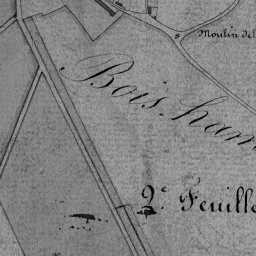 Moulin del
Bois.ham
2e Feuille